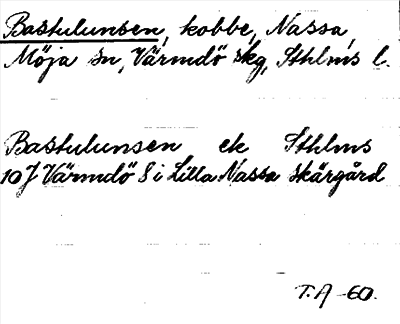 Bastulunsen, kobbe, Nassa,
Möja sn, Värmdö skg, Sthlms l.
Bastulunsen ek Sthlms
10J Värmdö S i Lilla Nassa skärgård
T.A -60.